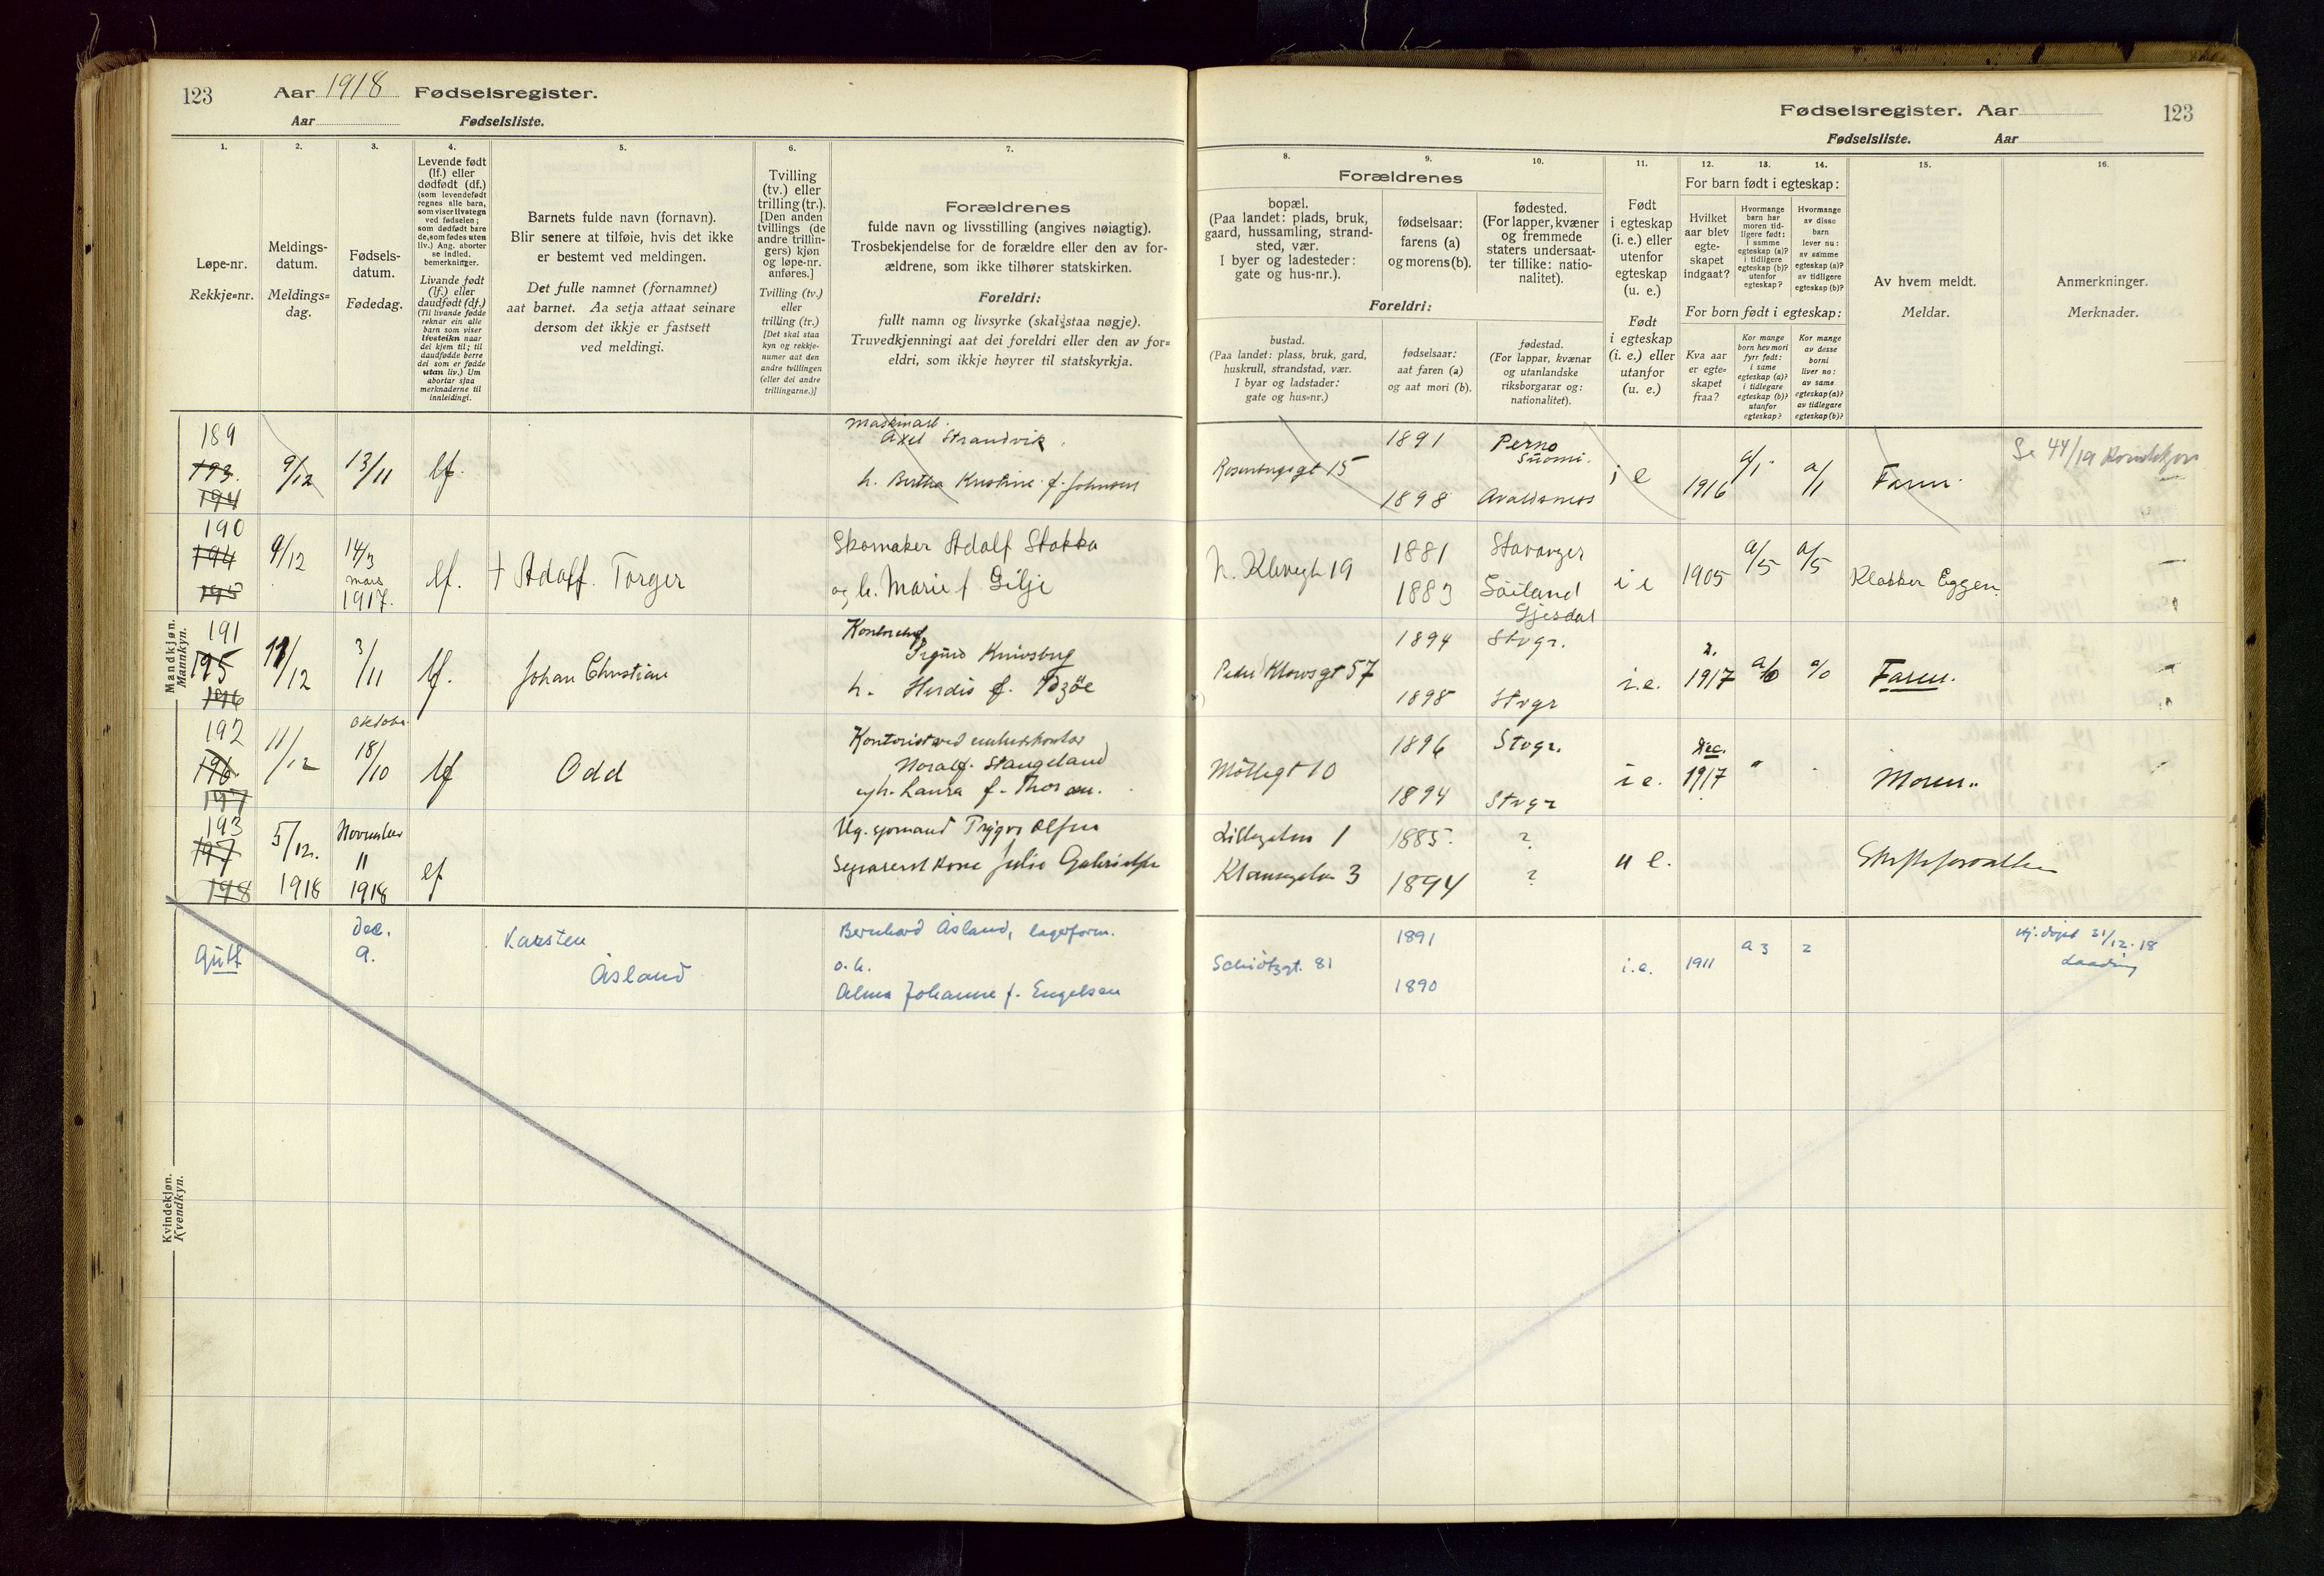 123 Aar 1918 Fødselsregister.
Aar Fødselsliste.
1. 2. 3. 4. 5. 6. 7.
Løpe-nr.
Rekkje-nr.
Meldings-
datum.
Meldings-
dag.
Fødsels-
datum.
Fødedag.
Levende født
(lf.) eller
dødfødt (df.)
(som levendefødt
regnes alle barn,
som viser livstegn
ved fødselen;
som dødfødt bare
de, som fødes uten
liv.) Ang. aborter
se indled.
bemerkninger.
Livande født
(lf.) eller
daudfødt (df.)
(Til livande fødde
reknar ein alle
barn som viser
livsteikn naar
dei kjem til; til
daudfødde berre
dei som er fødde
utan liv.) Um
abortar sjaa
merknaderne til
innleidingi.
Barnets fulde navn (fornavn).
Blir senere at tilføie, hvis det ikke
er bestemt ved meldingen.
Det fulle namnet (fornamnet)
aat barnet. Aa setja attaat seinare
dersom det ikkje er fastsett
ved meldingi.
Tvilling
(tv.) eller
trilling (tr.).
[Den anden
tvillings (de
andre trillin-
gers) kjøn
og løpe-nr.
anføres.]
Tvilling (tv.)
eller
trilling (tr.)
[Det skal staa
kyn og rekkje-
numer aat den
andre tvillingen
(eller dei andre
trillingarne.)]
Forældrenes
fulde navn og livsstilling (angives nøiagtig).
Trosbekjendelse for de forældre eller den av for-
ældrene, som ikke tilhører statskirken.
Foreldri:
fullt namn og livsyrke (skal staa nøgje).
Truvedkjenningi aat dei foreldri eller den av for-
eldri, som ikkje høyrer til statskyrkja.
Mandkjøn.
Mannkyn.
189
193.
194
9/12
13/11
lf.
Axel Strandvik.
h. Bertha Kristine f. Johnsen
190
194
195
9/12
14/3
mars
1917.
lf.
† Adolf. Torger
Skomaker Adolf Stokka
og h. Marie f Gilje
191
195
196
11/12
3/11
lf.
Johan Christian
Sigurd Knivsberg
h. Herdis f.
192
196
197
11/12
oktober
18/10
lf
Odd
Noralf. Stangeland
og h. Laura f. Thorsen.
193
197
198
5/12.
1918
November
11
1918
lf
Ug. sjømand Trygve Olsen
Separert kone Julie Gabrielsen
Kvindekjøn.
Kvendkyn.
Gutt
Dec.
9.
Karsten
Åsland
Bernhard Åsland, lagerform.
o. h.
Alma Johanne f. Engelsen
Fødselsregister. Aar 123
Fødselsliste. Aar
8. 9. 10. 11. 12. 13. 14. 15. 16.
Forældrenes
bopæl.
(Paa landet: plads, bruk,
gaard, hussamling, strand-
sted, vær.
I byer og ladesteder:
gate og hus-nr.).
fødselsaar:
farens (a)
og morens (b).
fødested.
(For lapper, kvæner
og fremmede
staters undersaat-
ter tillike: natio-
nalitet).
Foreldri:
bustad.
(Paa landet: plass, bruk, gard,
huskrull, strandstad, vær.
I byar og ladstader:
gate og hus-nr.)
fødselsaar:
aat faren (a)
og aat mori (b).
fødestad.
(For lappar, kvænar
og utanlandske
riksborgarar og:
nationalitet).
Født
i egteskap
(i. e.) eller
utenfor
egteskap
(u. e.)
Født
i egteskap
(i. e.) eller
utanfor
(u. e.)
For barn født i egteskap:
Hvilket
aar blev
egte-
skapet
indgaat?
Hvormange
barn har
moren tid-
ligere født:
i samme
egteskap (a)?
i tidligere
egteskap (b)?
utenfor
egteskap?
Hvormange
av disse
barn
lever nu:
av samme
egteskap (a)?
av tidligere
egteskap (b)?
For born født i egteskap:
Kva aar
er egte-
skapet
fraa?
Kor mange
born hev mori
fyrr født:
i same
egteskap (a)?
i tidlegare
egteskap (b)?
utanfor
egteskap?
Kor mange
av desse
borni
liver no:
av same
egteskap (a)?
av tidlegare
egteskap (b)?
Av hvem meldt.
Meldar.
Anmerkninger.
Merknader.
Rosenbergsgt 15
1891
1898
Perno
Suomi.
Avaldsnes
i e
1916
a/1.
a/1
Faren.
Se 44/19 Kvindekjøn
1881
1883
Stavanger
Söiland
Gjesdal
i e
1905
a/5
a/5
Klokker Eggen.
Peder Klowsgt 57
1894
1898
Stvgr.
Stvgr
i. e.
1917
a/0
a/0
Faren.
Möllegt 10
1896
1894
Stvgr.
Stvgr
i e.
Dec.
1917
Moren.
1
3
1885.
1894
?
?
u e.
Schiötzgt. 81
1891
1890
i. e.
1911
a 3
2
Hj. døpt 31/12. 18